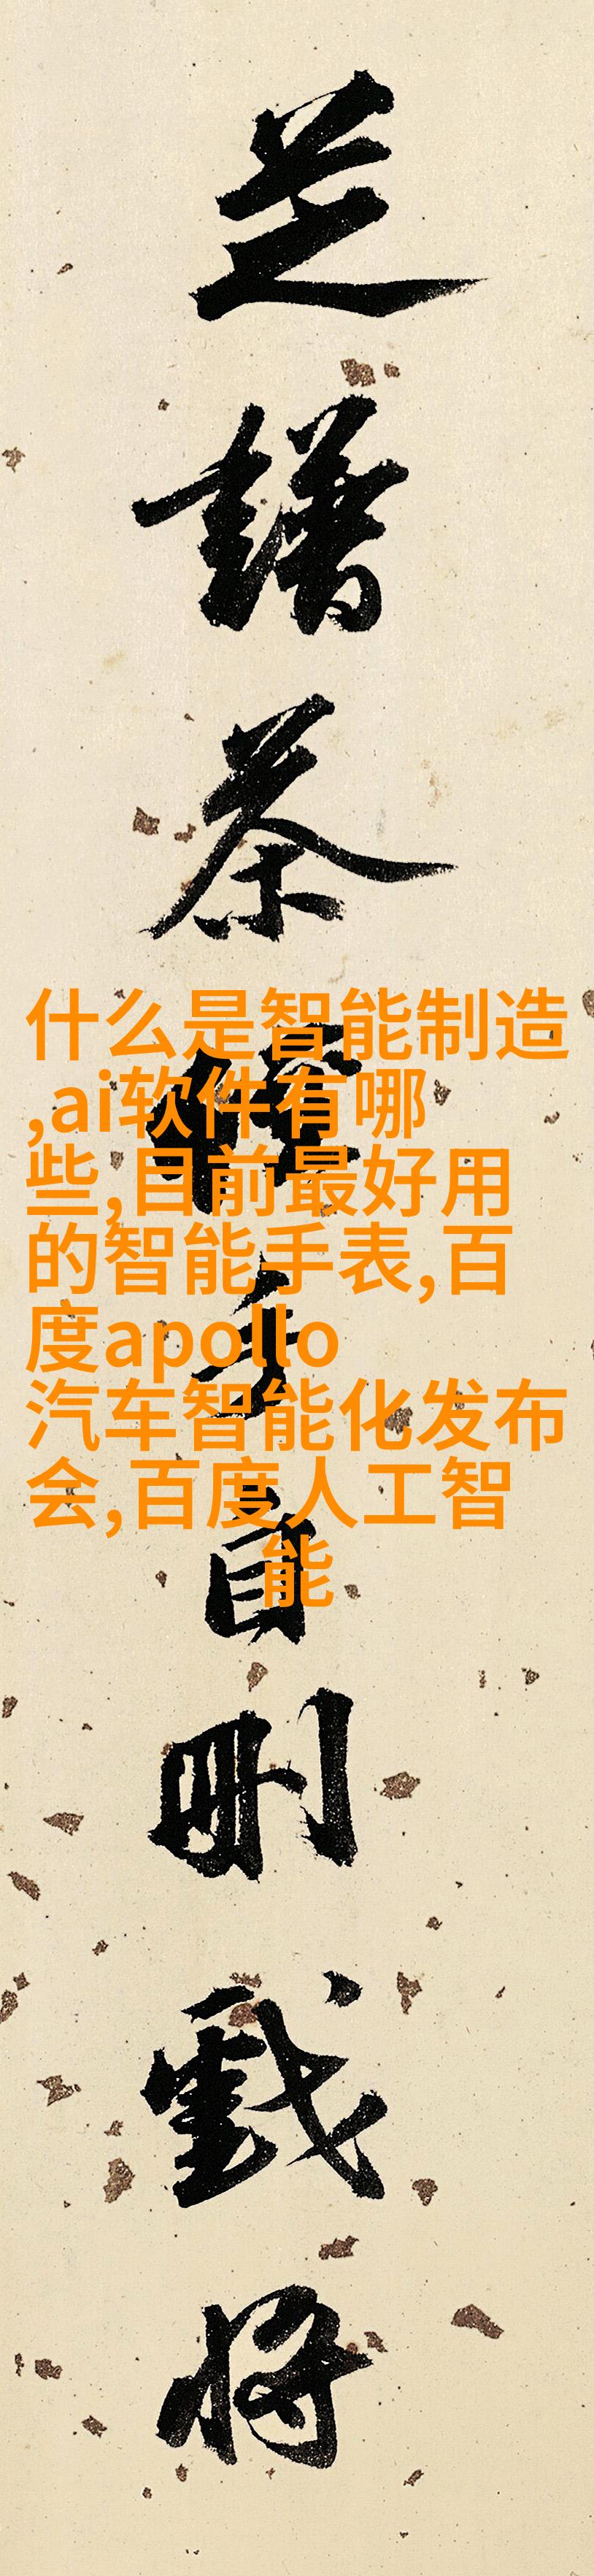 芝譜茶手自刪戲將
什么是智能制造
,ai软件有哪
些,目前最好用
的智能手表,百
度apollo
汽车智能化发布
会,百度人工智
能